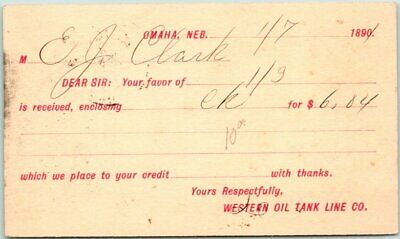 OMAHA, NEB. 1/7 1890
M E. J. Clark
DEAR SIR: Your favor of 1/3
is received, enclosing ck for $ 6.04
10
which we place to your credit with thanks.
Yours Respectfully,
WESTERN OIL TANK LINE CO.